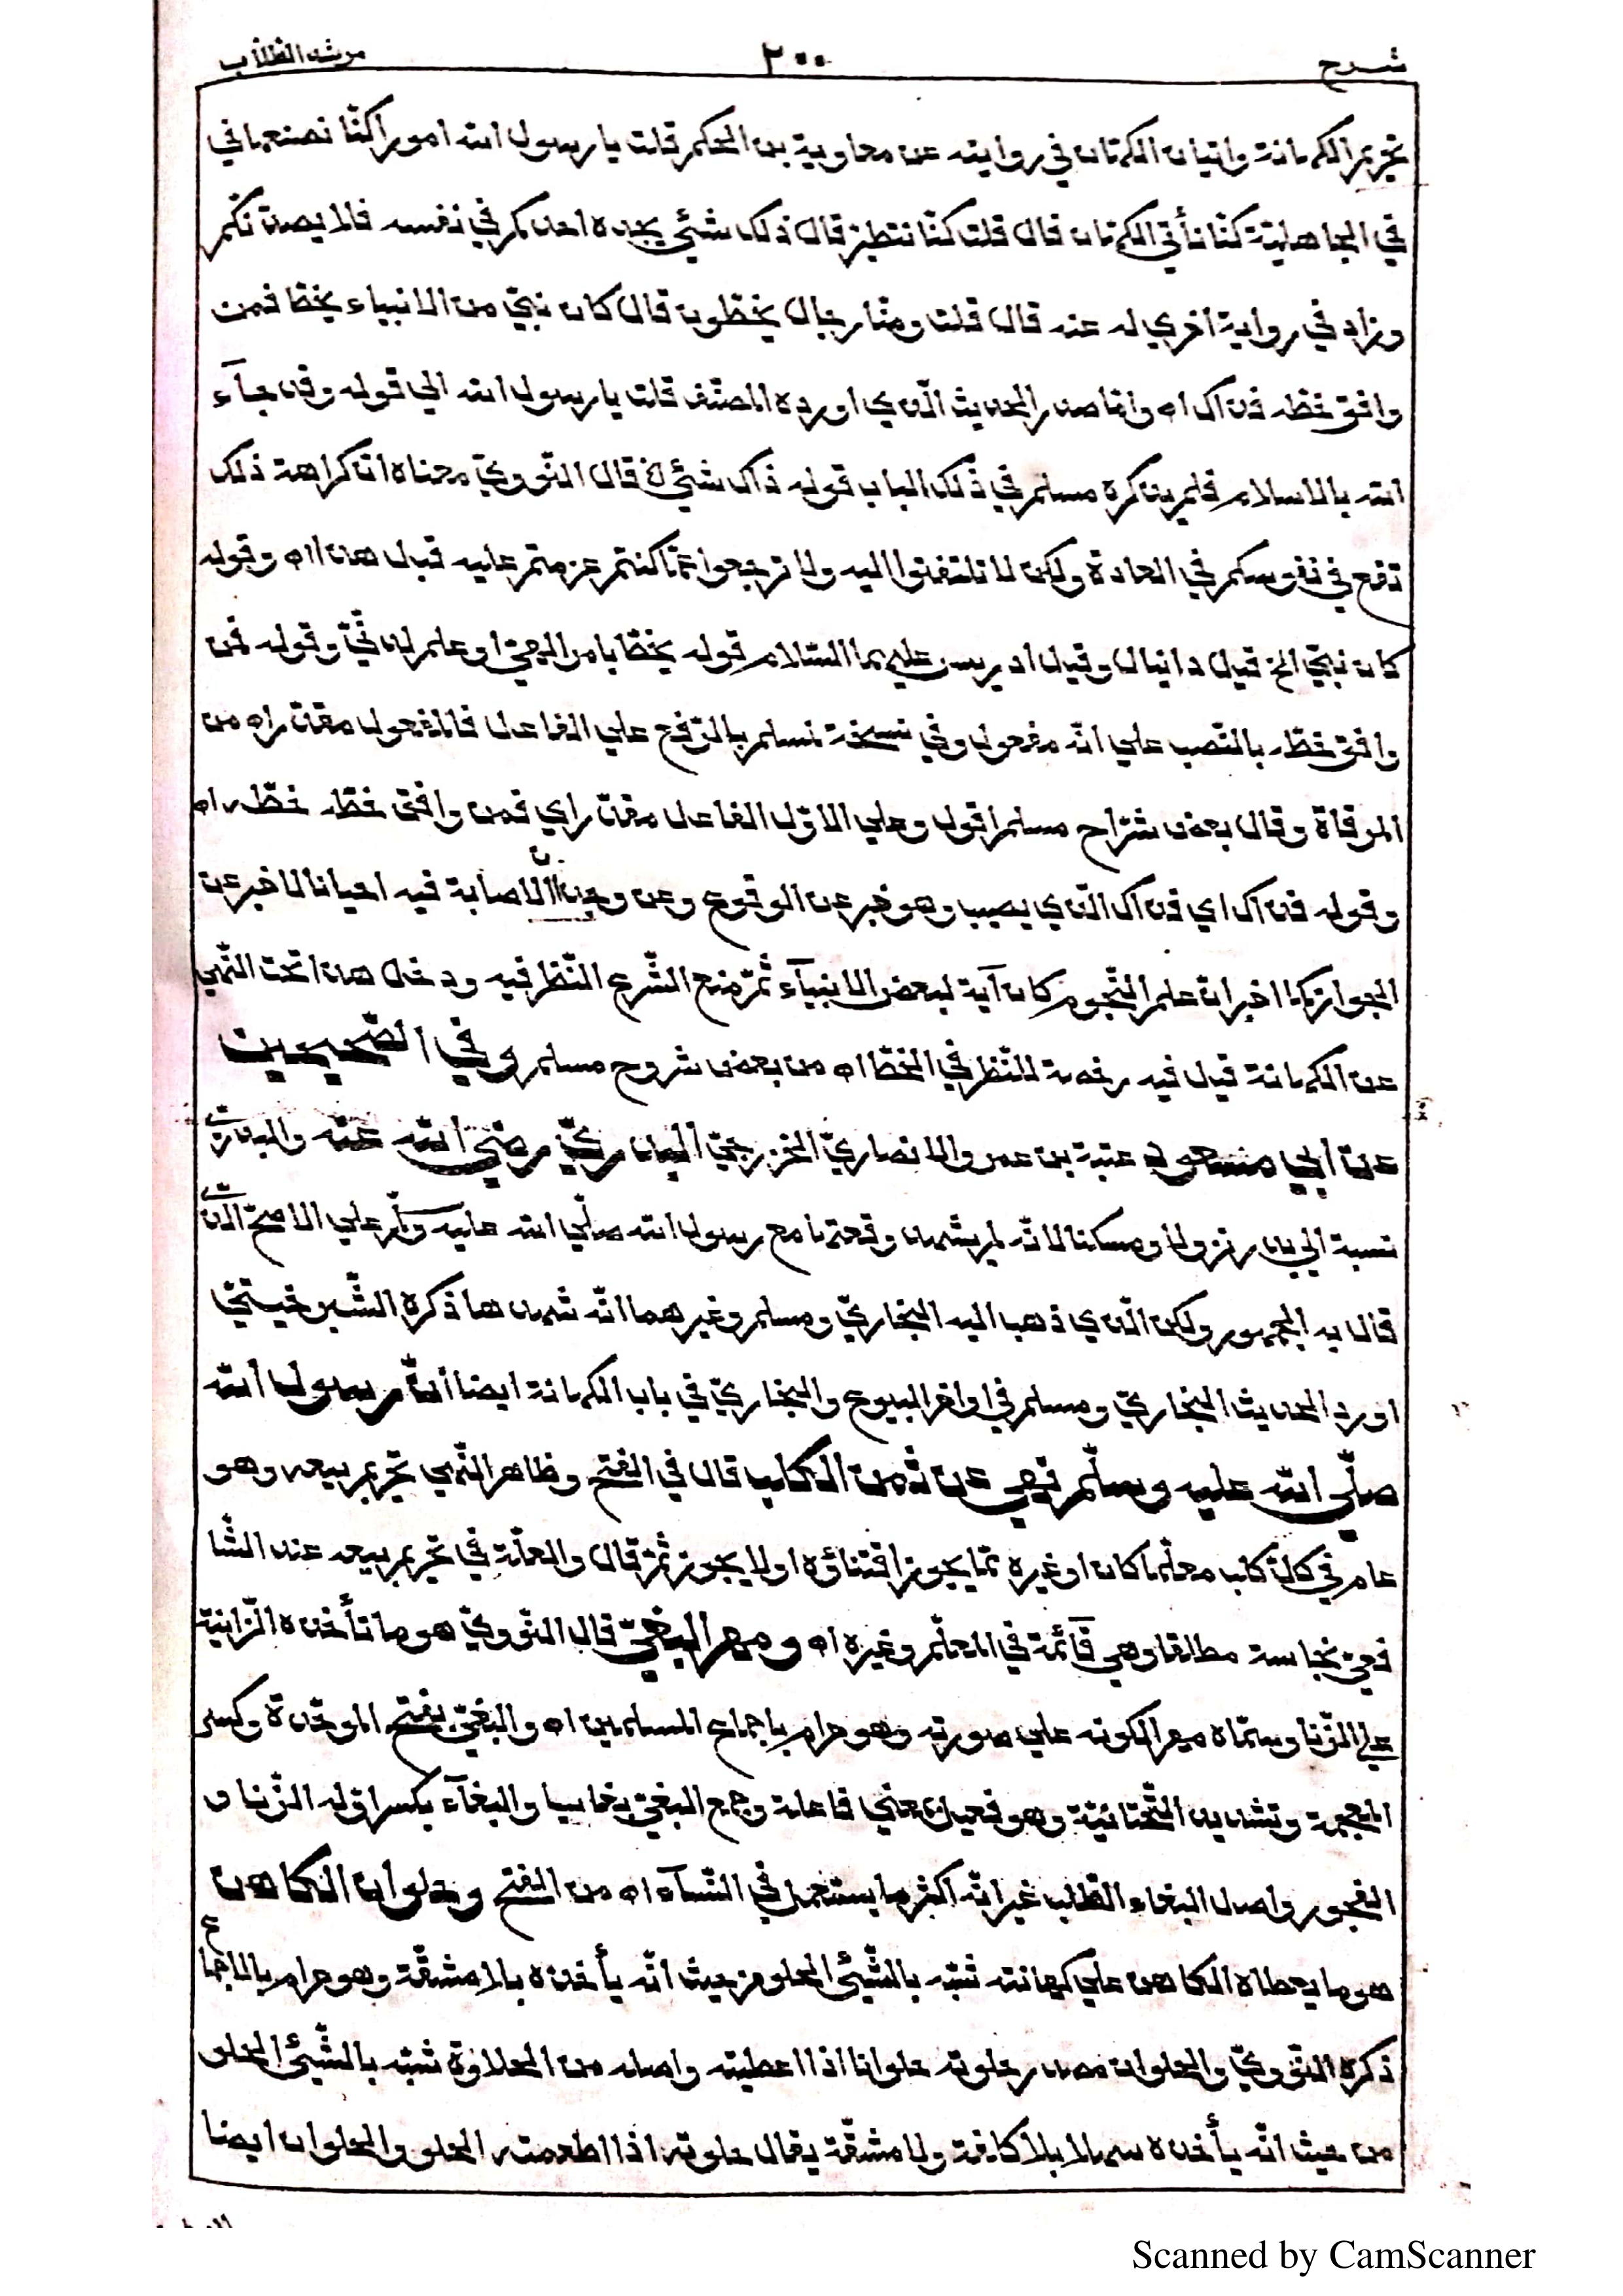 شرح ٢٠٠ مرشد الطلاب
تحريم الكهانة واتيان الكهان في روايته عن معاوية بن الحكم قلت يا رسول الله امورا كنّا نصنعها في
في الجاهليّة كنّا نأتي الكهان قال قلت كنّا نتطيّر قال ذلك شئ يجده احدكم في نفسه فلا يصدّنّكم
وزاد في رواية اخري له عنه قال قلت ومنّا رجال يخطّون قال كان نبيّ من الانبياء يخطّ فمن
وافق خطّه فذاك اه وانما صدر الحديث الّذي اورده المصنّف قلت يا رسول الله الي قوله وقد جآء
الله بالاسلام فلم يذكره مسلم في ذلك الباب قوله ذاك شئ الخ قال النّوويّ معناه انّ كراهة ذلك
تقع في نفوسكم في العادة ولكن لا تلتفتوا اليه ولا ترجعوا عمّا كنتم عزمتم عليه قبل هذا اه وقوله
كان نبيّ الخ قيل دانيال وقيل ادريس عليهما السّلام قوله يخطّ بامر الهيّ او علم لدنّيّ وقوله فمن
وافق خطّه بالنّصب علي انّه مفعول وفي نسخة لمسلم بالرّفع علي الفاعل فالمفعول مقدّر اه من
المرقاة وقال بعض شرّاح مسلم اقول وعلي الاوّل الفاعل مقدّر اي فمن وافق خطّه خطّه اه
وقوله فذاك اي فذاك الّذي يصيب وهو خبر عن الوقوع وعن وجدانّ الاصابة فيه احيانا لا خبر عن
الجواز كما اخبر انّ علم النّجوم كان آية لبعض الانبيآء ثمّ منع الشّرع النّظر فيه ودخل هذا تحت النّهي
عن الكهانة قيل فيه رخصة للنّظر في الخطّ اه من بعض شروح مسلم وفي الصّحيحين
عن ابي مسعود عتبة بن عمرو الانصاريّ الخزرجيّ البدريّ رضي الله عنه والبدريّ
نسبة الي بدر نزولا ومسكنا لانّه لم يشهد وقعتها مع رسول الله صلّي الله عليه وسلّم علي الاصحّ الّذي
قال به الجمهور ولكن الّذي ذهب اليه البخاريّ ومسلم وغيرهما انّه شهدها ذكره الشّبرخيتيّ
اورد الحديث البخاريّ ومسلم في اواخر البيوع والبخاريّ في باب الكهانة ايضا انّ رسول الله
صلّي الله عليه وسلّم نهي عن ثمن الكلب قال في الفتح وظاهر النّهي تحريم بيعه وهو
عام في كلّ كلب معلّما كان او غيره ممّا يجوز اقتناؤه او لا يجوز ثمّ قال والعلّة في تحريم بيعه عند الشّا
فعيّ نجاسته مطلقا وهي قآئمة في المعلّم وغيره اه ومهر البغيّ قال النّوويّ هو ما تأخذه الزّانية
علي الزّنا وسمّاه مهرا لكونه علي صورته وهو حرام باجماع المسلمين اه والبغيّ بفتح الموحّدة وكسر
المعجمة وتشديد التّحتانيّة وهو فعيل بمعني فاعلة وجمع البغيّ بغايا والبغآء بكسر اوّله الزّنا و
الفجور واصل البغاء الطّلب غير انّه اكثر ما يستعمل في النّسآء اه من الفتح وحلوان الكاهن
هو ما يعطاه الكاهن علي كهانته شبّه بالشّيئ الحلو من حيث انّه يأخذه بلا مشقّة وهو حرام بالاجماع
ذكره النّوويّ والحلوان مصدر حلوته حلوانا اذا اعطيته واصله من الحلاوة شبّه بالشّيئ الحلو
من حيث انّه يأخذه سهلا بلا كلفة ولا مشقّة يقال حلوته اذا اطعمته الحلو والحلوان ايضا
Scanned by CamScanner